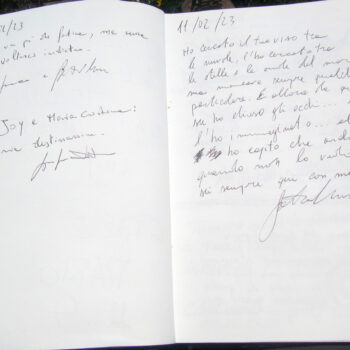 /02/23
va più da fatica, ma una
indietro.
Joy e Maria Costanza:
mia destinazione.
11/02/23
Ho cercato il tuo viso tra
le nuvole, l'ho cercato tra
le stelle e le onde del mare
ma mancava sempre qualche
particolare. E allora
ho chiuso gli occhi...
l'ho immaginato... e
ho capito che anche
quando non lo vedi
sei sempre qui con me